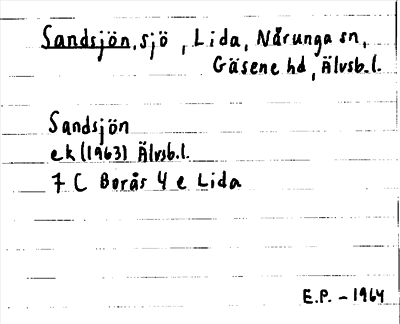 Sandsjön, sjö, Lida, Nårunga sn,
Gäsene hd, Älvsb.l.
Sandsjön
ek (1963) Älvsb.l.
7 C Borås 4 e Lida
E.P. - 1964